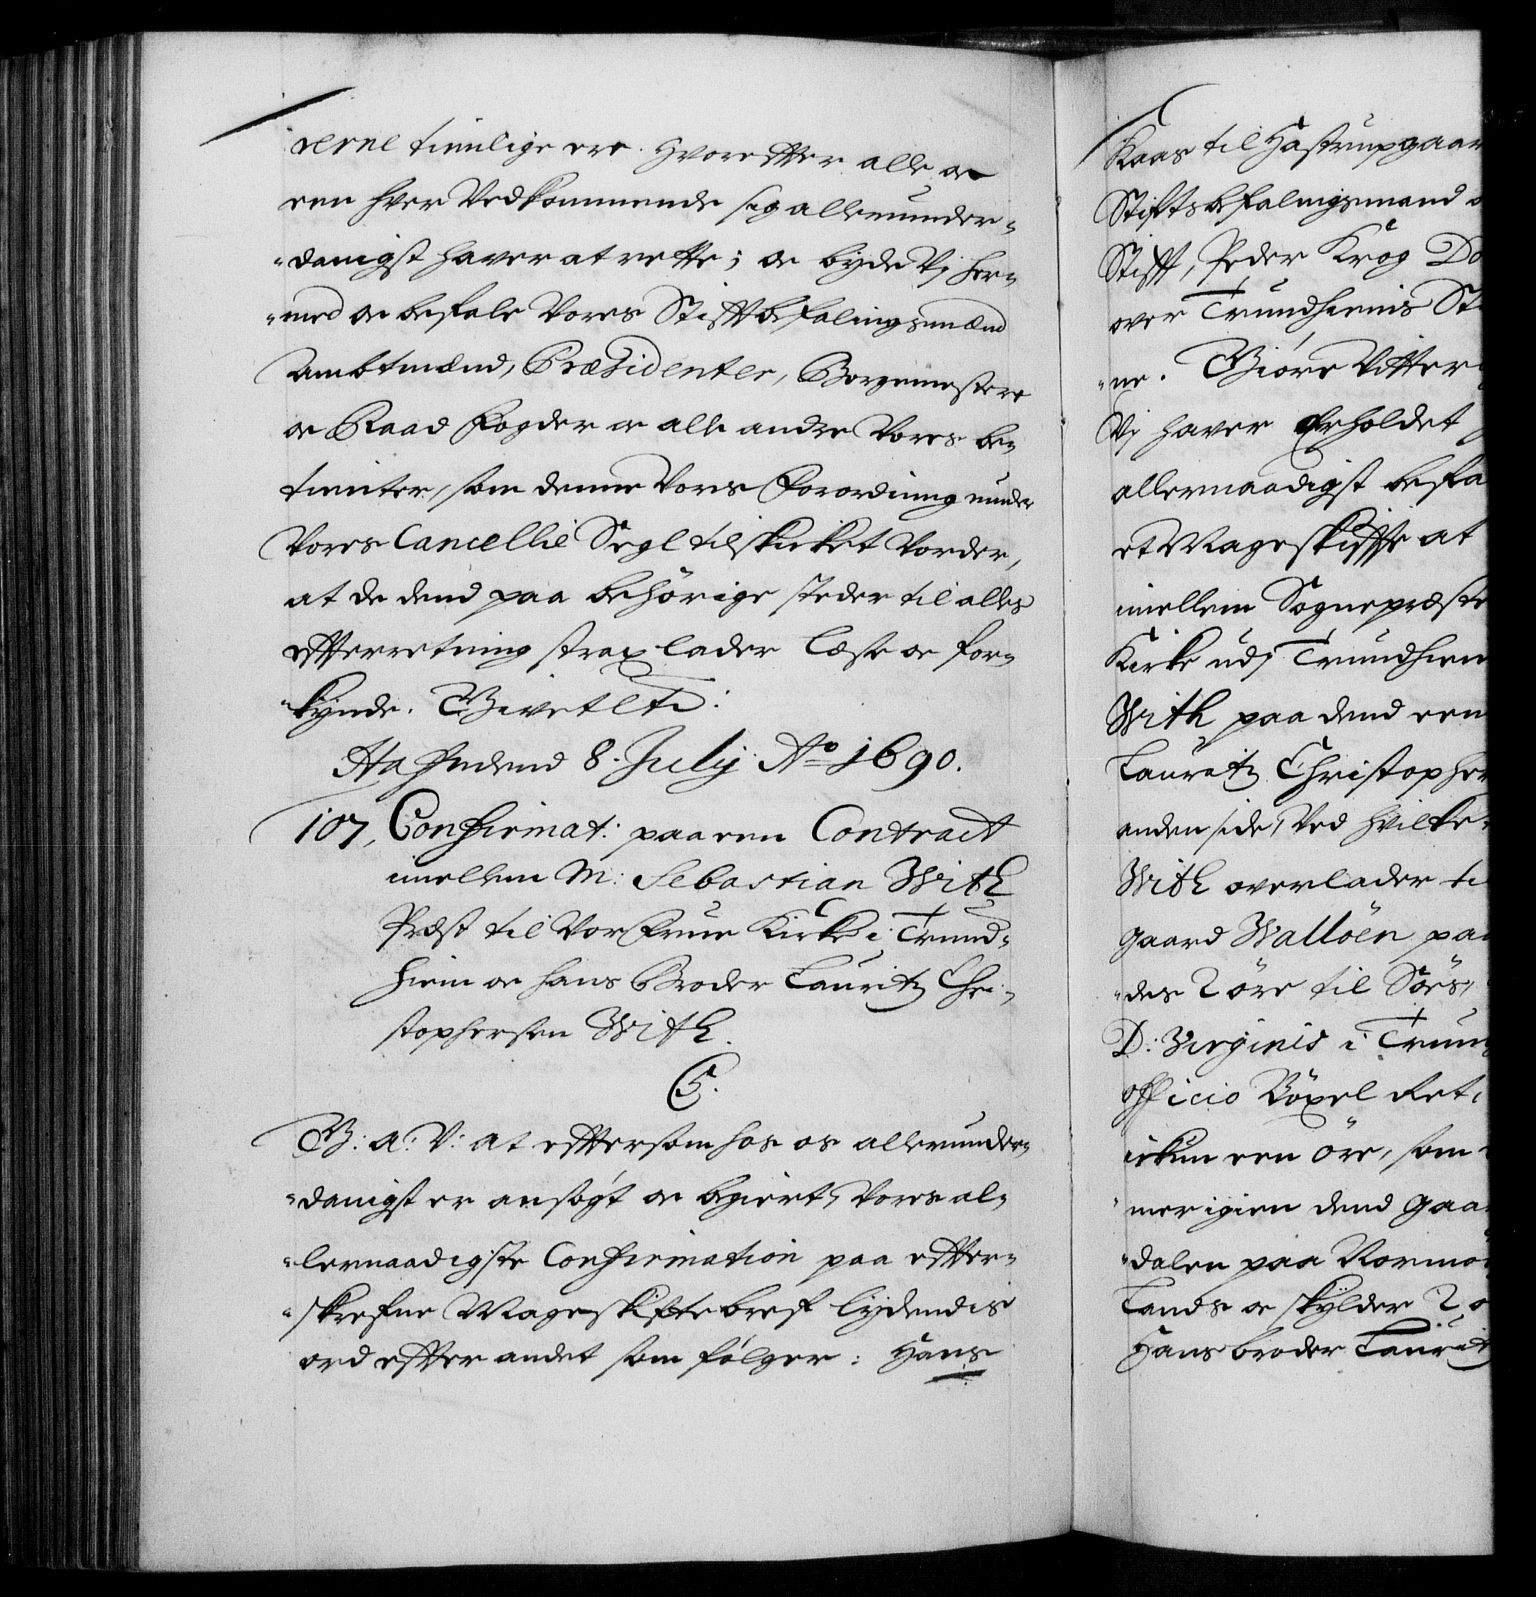 derne timlige ere. Hvorefter alle oc
een hver Vedkommende sig allerunder-
-danigst haver at rette; oc byde Vj her-
-med oc befale Vores Stiftbefalingsmænd
Ambtmænd, Præsidenter, Borgemestere
oc Raad Fogder oc alle andre Vores be-
tienter, som denne Vores Forordning under
Vores Cancellie Segl tilskicket Vorder,
at de dend paa behörige steder til alles
efterretning strax lader læse oc for-
-kynde. Givet etc:
Hafn dend 8. July Ao 1690.
107, Confirmat: paa een Contract
imellem M: Sebastian With
Præst til Vor Frue Kirke i Trund-
hiem oc hans Broder Lauritz Chri-
stophersen With.
C5.
G: a: V: at eftersom hos os allerunder-
-danigst er ansögt oc begiert, Vores al-
-lernaadigste Confirmation paa efter-
-skrefne Mageskiftebref lydendis
ord efter andet som fölger: Hans
Kaas til Hastrupgaar
Stiftsbefalingsmand o
Stift, Peder Krog Do
over Trundhiems St
-ne. Giöre Vitter
Vj haver Erholdet
allernaadigst befa
et Mageskiffte at
imellem Sognepræste
Kirke udj Trundhiem
With paa dend een
Lauritz Christopher
anden side, Ved hvilke
With overlader ti
gaard Walloen paa
-des 2 öre til Sörs,
D: Virginis i Trun
officio Böxel Ret,
ickun een öre, som
-mer igien dend gaa
-dalen paa Normo
Lands oc skylder 2 o
Hans broder Laurit